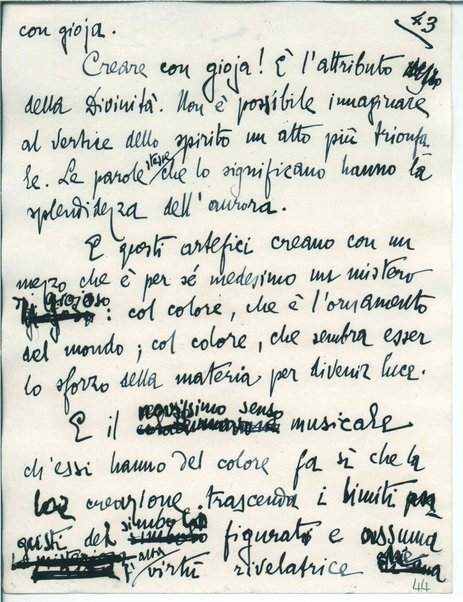 43
con gioja.
Creare con gioja! È l'attributo
della Divinità. Non è possibile immaginare
al vertice dello spirito un atto più trionfa-
le. Le parole stesse che lo significano hanno la
splendidezza dell'aurora.
E questi artefici creano con un
mezzo che è per sé medesimo un mistero
gioioso: col colore, che è l'ornamento
del mondo; col colore, che sembra esser
lo sforzo della materia per divenir luce.
E il novissimo senso musicale
ch'essi hanno del colore fa sì che la
lor creazione trascenda i limiti
angusti dei simboli figurati e assuma
l'alta virtù rivelatrice
44